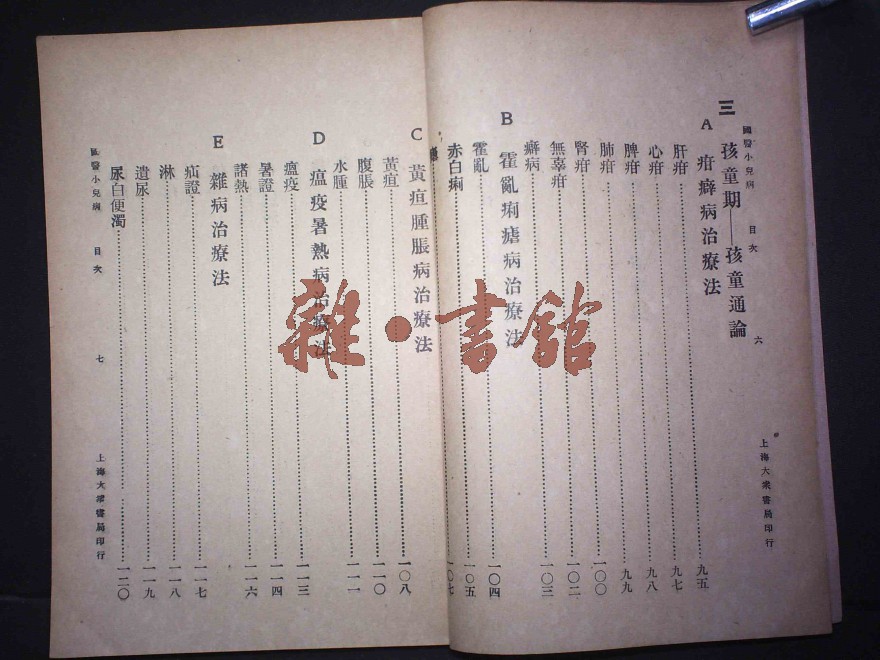 國醫小兒病 目次 六 上海大衆書局印行
三 孩童期——孩童通論
A 疳癖病治療法
肝疳……九五
心疳……九七
脾疳……九八
肺疳……九九
腎疳……一〇〇
無辜疳……一〇二
癖病……一〇三
B 霍亂痢瘧病治療法
霍亂……一〇四
赤白痢……一〇五
一〇七
C 黃疸腫脹病治療法
黃疸……一〇八
腹脹……一一〇
水腫……一一一
D 瘟疫暑熱病治療法
瘟疫……一一三
暑證……一一四
諸熱……一一六
E 雜病治療法
疝證……一一七
淋……一一八
遺尿……一一九
尿白便濁……一二〇
國醫小兒病 目次 七 上海大衆書局印行
雜·書館